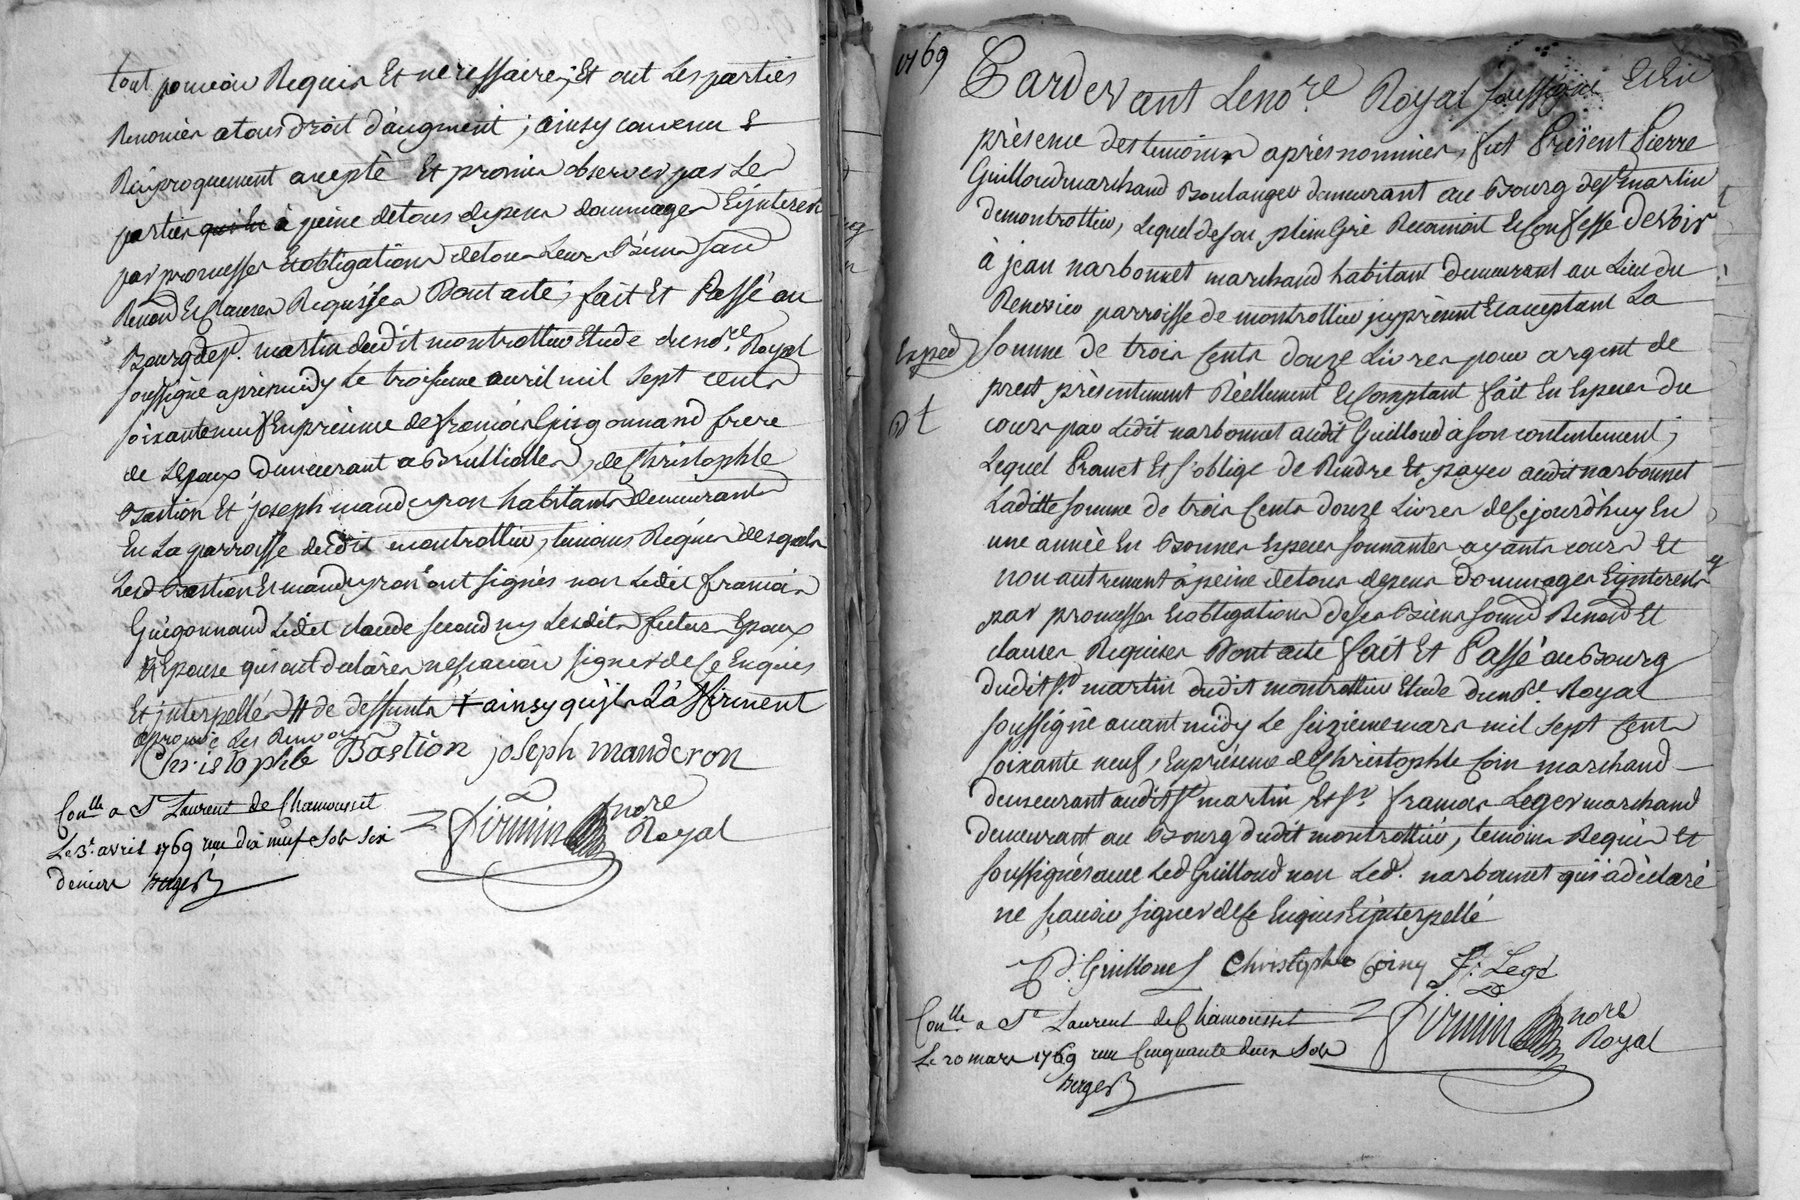 tout pouvoir Requis Et necessaire, Et ont Les parties
Renoncés a tous droit d'augment ; ainsy convenu &
Réciproquement accepté Et promis observer par Les
parties à peine de tous depens dommages Et jnterests
par promesses Et obligations de tous Leurs Biens sous
Renon. Et Clauses Requises Dont acte ; fait Et Passé au
Bourg de St. martin dudit montrottier Etude du no.re Royal
soussigné après midy Le troisieme avril mil sept cents
soixante neuf En présence de françois Guigonnand frere
de L'Epoux demeurant a Brullioles, de Christophle
Bastion Et joseph manderon habitants demeurants
En La parroisse dudit montrottier, temoins Requis desquels
Lesd. Bastion Et manderon ont signés non Ledit françois
Guigonnand Ledit claude second ny Lesdits futurs Epoux
Et Epouse qui ont declarés ne sçavoir signer de Ce Enquis
Et jnterpellés # de deffunts + ainsy qu'jls L'affirment
aprouvé Les Renvois
Christophle Bastion joseph manderon
Conlle a St Laurent de Chamousset
Le 3e. avril 1769 reçu dix neuf sols six
deniers Berger
firmin nore
Royal
1769
Pardevant Le no.re Royal soussigné Et En
présence des temoins après nommés, fut Présent Pierre
Guilloud marchand Boulanger demeurant au Bourg de St martin
de montrottier, Lequel de son plein Gré Reconnoit Et Confesse devoir
à jean narbonnet marchand habitant demeurant au Lieu du
parroisse de montrottier jcy présent Et acceptant La
Exped. somme de trois Cents douze Livres pour argent de
prest présentement Réellement Et Comptant fait En Especes du
cours par Ledit narbonnet audit Guilloud a son contentement ;
Lequel Promet Et s'oblige de Rendre Et payer audit narbonnet
Laditte somme de trois Cents douze Livres de Ce jourd'huy En
une année En Bonnes Especes sonnantes ayants cours Et
non autrement à peine de tous depens dommages Et jnterests
par promesses Et obligations de ses Biens soumis. Renon. Et
clauses Requises Dont acte fait Et Passé au Bourg
dudit St. martin dudit montrottier Etude du no.re Royal
soussigné avant midy Le seizieme mars mil sept Cents
soixante neuf, En présence de Christophle Coin marchand
demeurant audit St martin Et Sr. françois Leger marchand
demeurant au Bourg dudit montrottier, temoins Requis Et
soussignés avec Led. Guilloud non Led. narbonnet qui a déclaré
ne sçavoir signer de Ce Enquis Et jnterpellé
Guilloud Christophle Coing f. Legé
Conlle a St Laurent de Chamousset
Le 20 mars 1769 reçu Cinquante deux sols
Berger
firmin nore
Royal